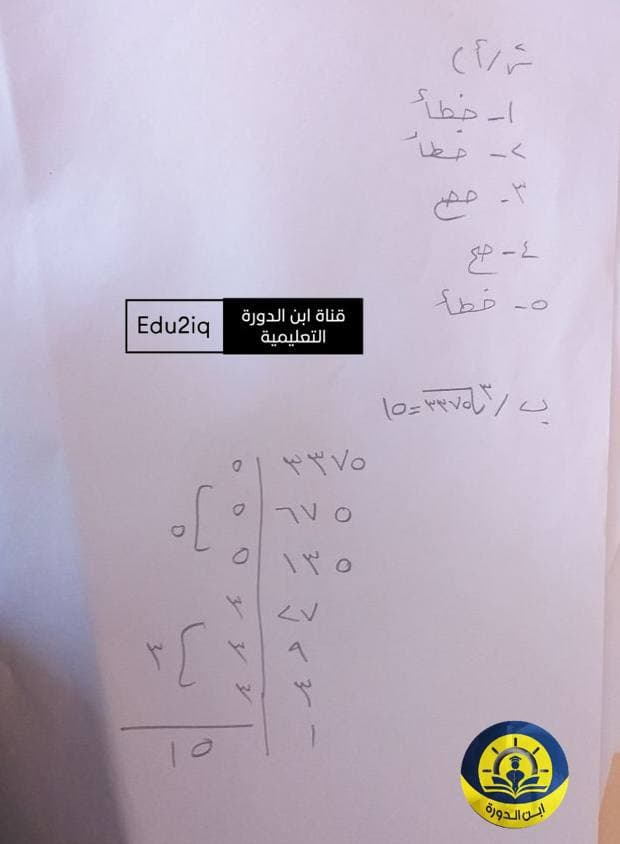 س/أ)
١- خطأ
٢- خطأ
٣- صح
٤- صح
٥- خطأ
Edu2iq
قناة ابن الدورة
التعليمية
ب / ∛٣٣٧٥ = ١٥
٣٣٧٥ | ٥
٦٧٥ | ٥ ] ٥
١٣٥ | ٥
٢٧ | ٣
٩ | ٣ ] ٣
٣ | ٣
١ |
١٥
ابن الدورة